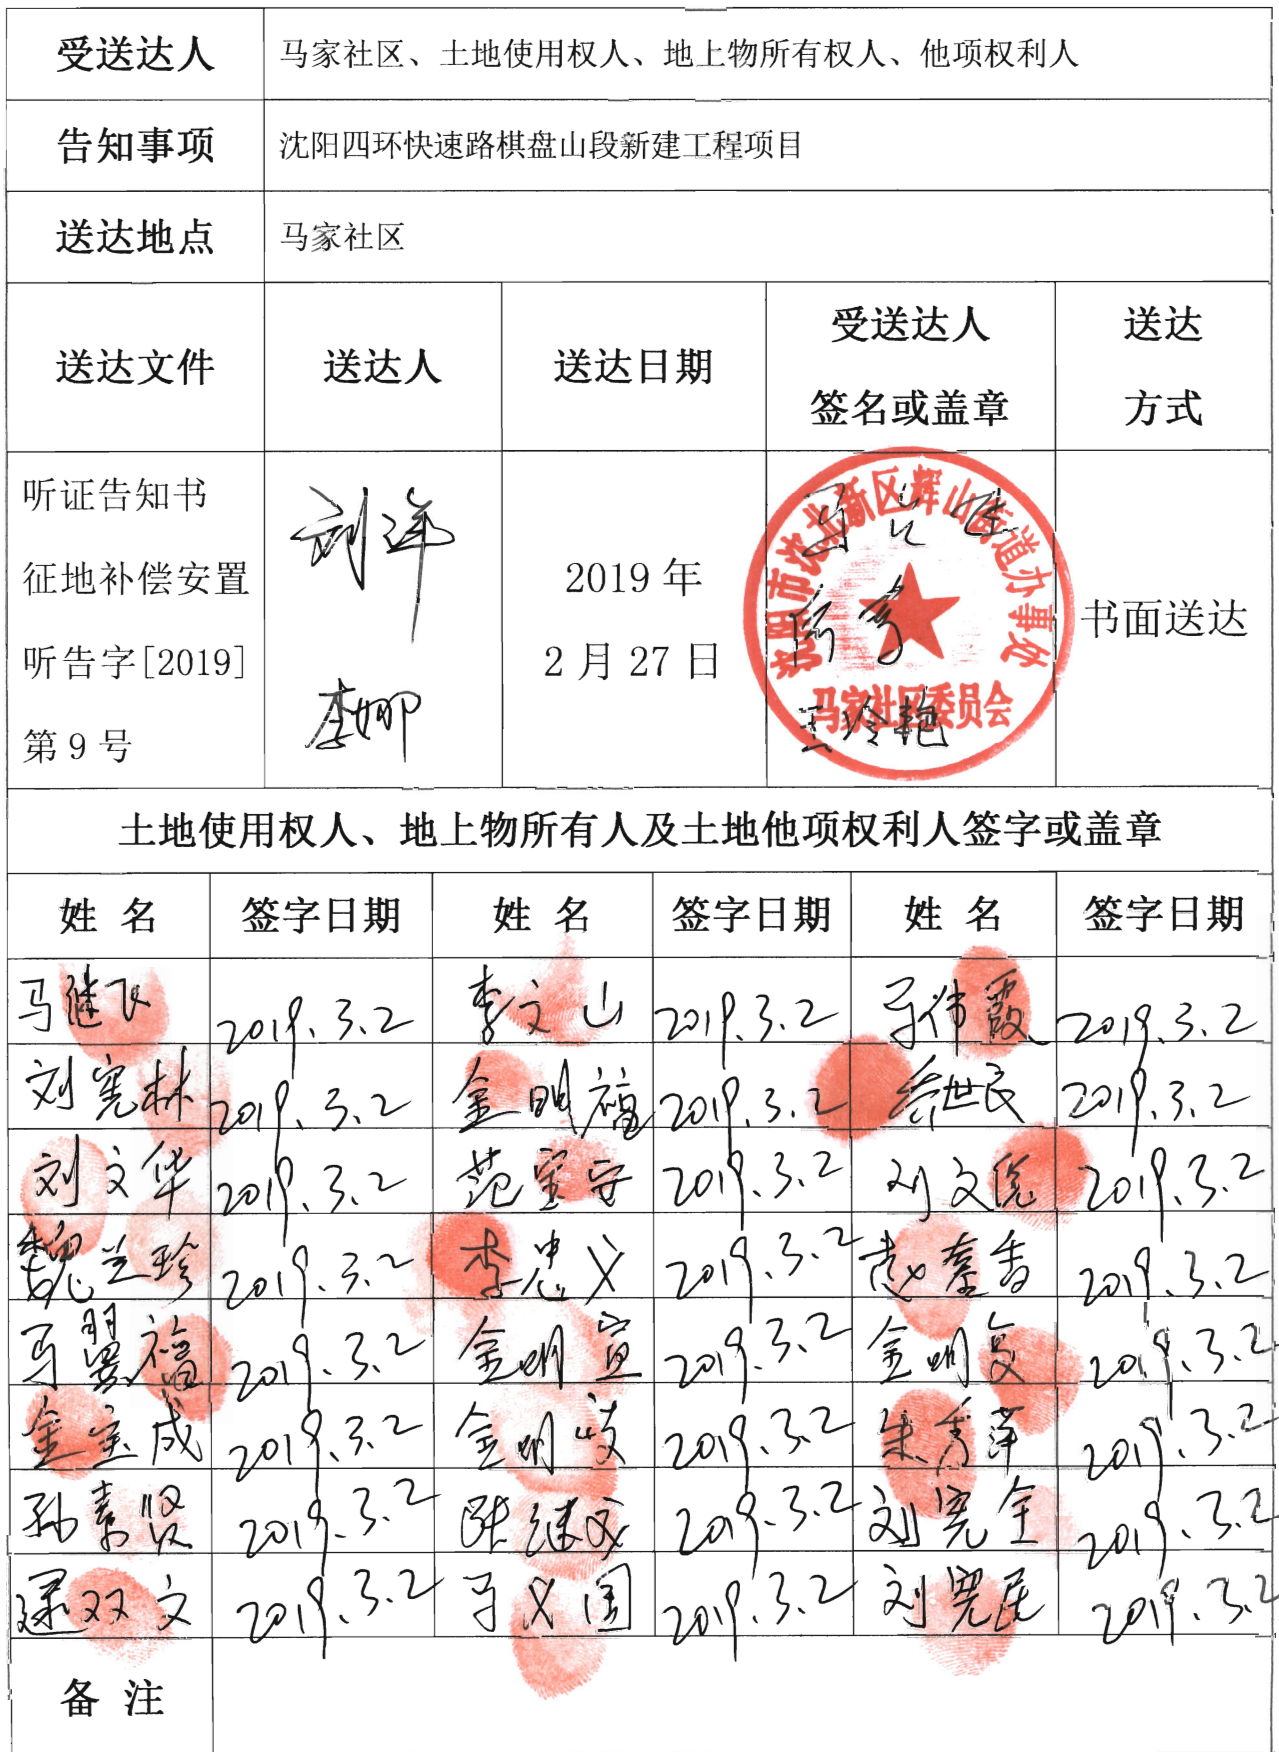 受送达人 马家社区、土地使用权人、地上物所有权人、他项权利人
告知事项 沈阳四环快速路棋盘山段新建工程项目
送达地点 马家社区
送达文件 送达人 送达日期 受送达人签名或盖章 送达方式
听证告知书
征地补偿安置
听告字[2019]
第9号
刘洋
李娜
2019年
2月27日
沈阳市沈北新区辉山街道办事处
马家社区委员会
王玲艳
书面送达
土地使用权人、地上物所有人及土地他项权利人签字或盖章
姓名 签字日期 姓名 签字日期 姓名 签字日期
马继飞 2019.3.2 李文山 2019.3.2 马伟霞 2019.3.2
刘宪林 2019.3.2 金明福 2019.3.2 徐世民 2019.3.2
刘文华 2019.3.2 范宝安 2019.3.2 刘文俊 2019.3.2
魏兰珍 2019.3.2 李忠义 2019.3.2 2019.3.2
2019.3.2 金明宣 2019.3.2 金明复 2019.3.2
金宝成 2019.3.2 金明岐 2019.3.2 朱秀萍 2019.3.2
孙素贤 2019.3.2 张继成 2019.3.2 刘宪全 2019.3.2
逯双文 2019.3.2 马义国 2019.3.2 刘宪民 2019.3.2
备注